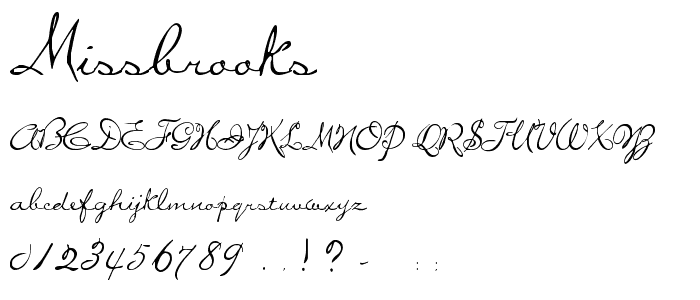 Missbrooks
ABCDEFGHIJKLMNOP QRSTUVWXYZ
abcdefghijklmnopqrstuvwxyz
0123456789 . , ! ? - : ;